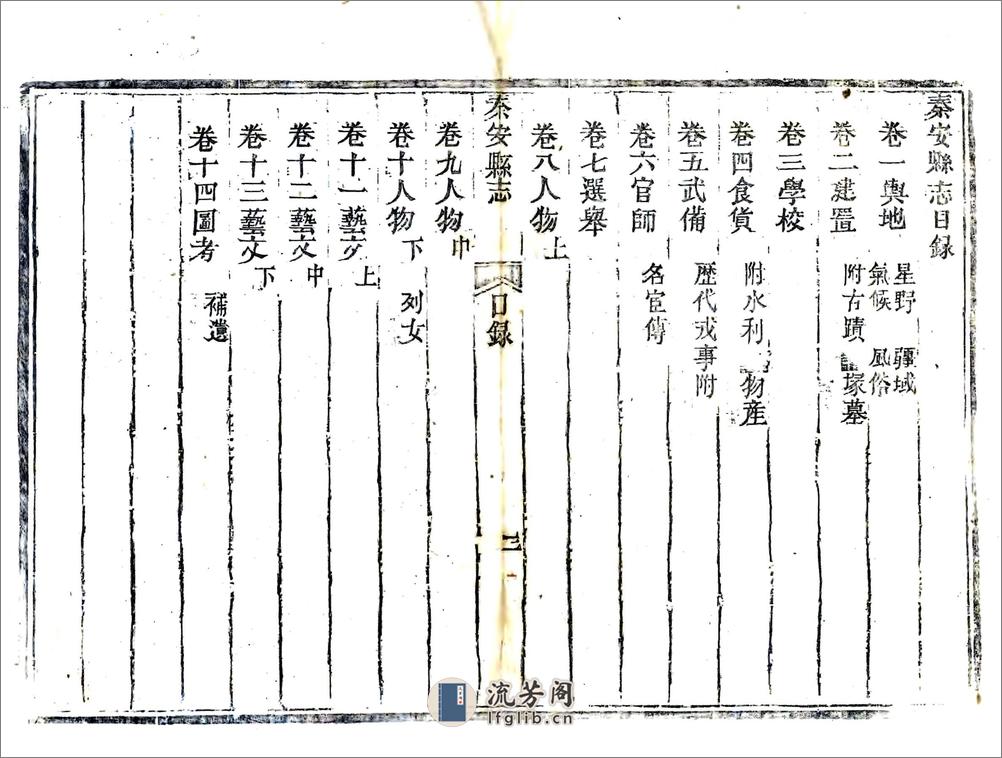 秦安縣志目錄
卷一輿地 星野 疆域
氣候 風俗
卷二建置 附古蹟 塚墓
卷三學校
卷四食貨 附水利 物產
卷五武備 歷代戎事附
卷六官師 名宦傳
卷七選舉
卷八人物上
秦安縣志 目錄 三
卷九人物中
卷十人物下 列女
卷十一藝文上
卷十二藝文中
卷十三藝文下
卷十四圖考 補遺
流芳阁
lfglib.cn